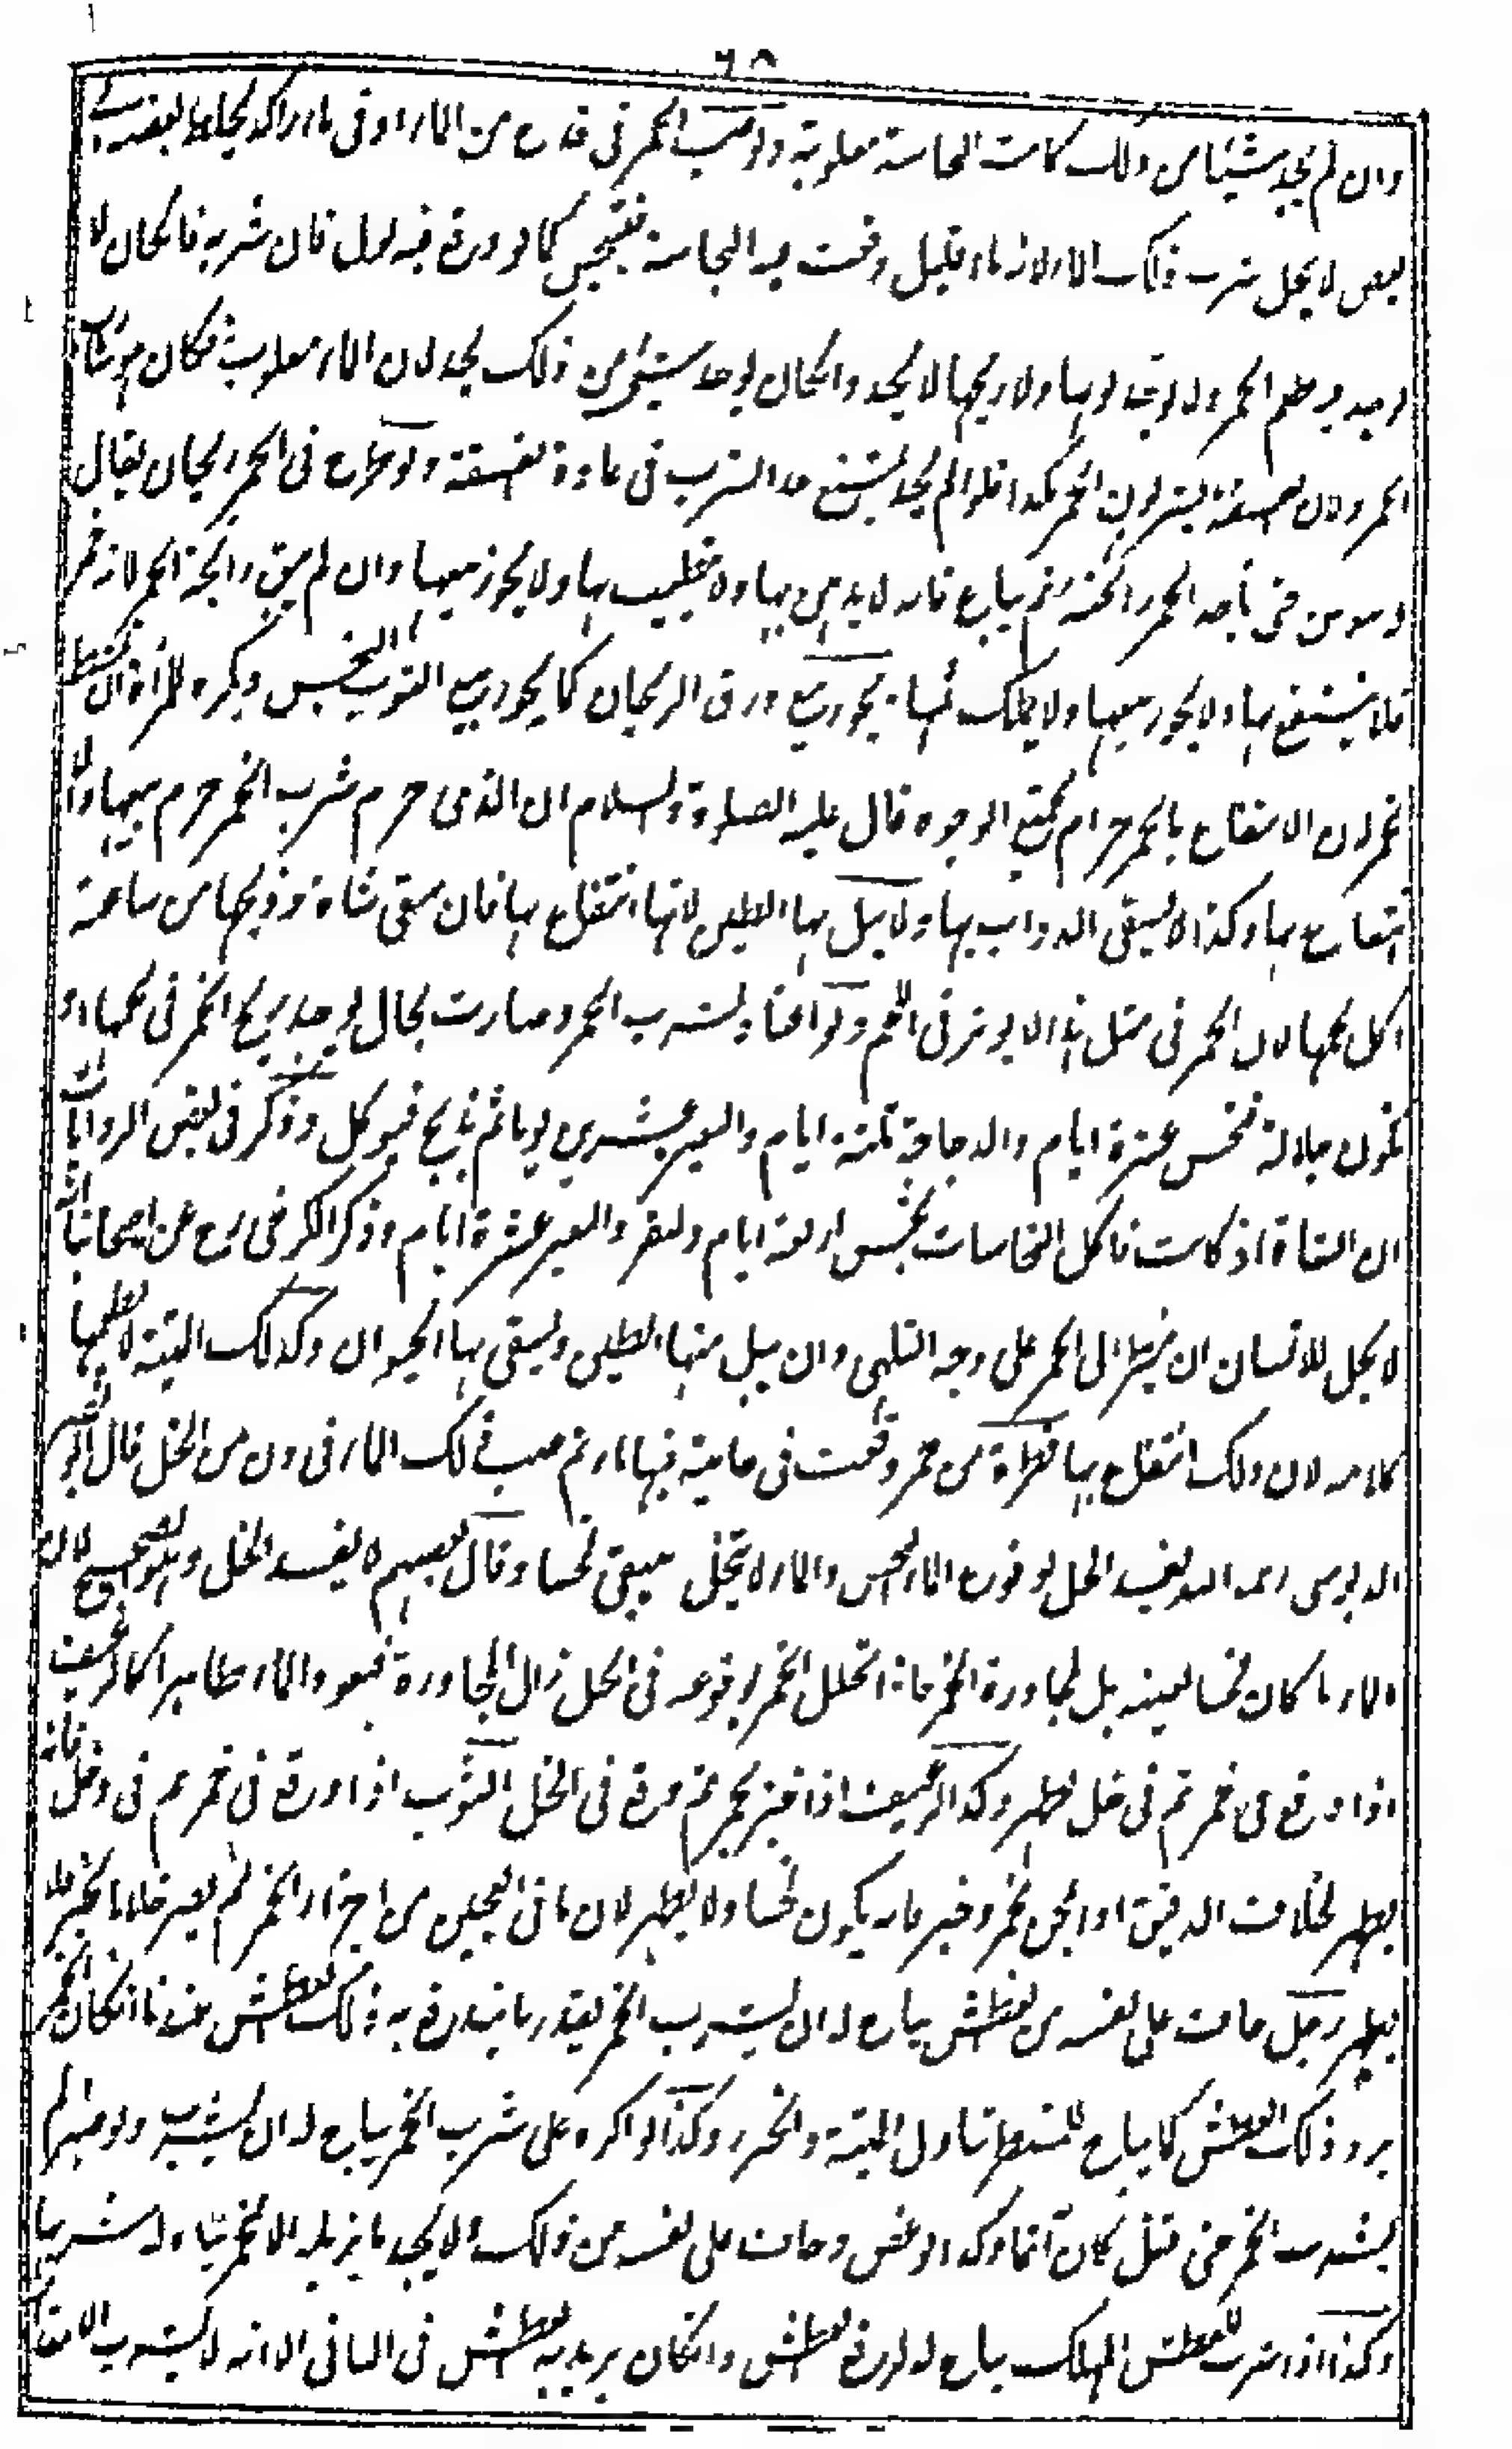 ٦٨
وان لم يجد شيئا من ذلك كانت الخاسة مغلوبة ولو صب الخمر في قدح من الماء او في ماء راكد يخلط بعضه
بعض لا يحل شرب ذلك الماء لانه ماء قليل وقعت فيه النجاسة فتنجس كما لو وقع فيه بول فان شربه فانكان لا
يوجد فيه طعم الخمر ولا لونها ولا ريحها لا يحد وانكان يوجد شيئ من ذلك يحد لان الماء مغلوب فكان
الخمر ولان الفسقة يشربون الخمر هكذا فلو لم يجد يمتنع حد الشرب في عادة الفسقة ولو طرح في الخمر ريحان يقال
له سوسن حتى ياخذ الخمر رائحته ثم يباع فانه لا يدهن بها ولا يتطيب بها ولا يجوز بيعها وان لم يبق رائحة الخمر لانه خمر
فلا ينتفع بها ولا يجوز بيعها ولا يملك ثمنها يجوز بيع ورق الريحان كما يجوز بيع الثوب النجس ويكره للمرأة ان تمتشط
بالخمر لان الانتفاع بالخمر حرام بجميع الوجوه قال عليه الصلوة والسلام ان الذي حرم شرب الخمر حرم بيعها والا
نتفاع بها وكذا لا يسقى الدواب بها ولا يبل بها الطين لانها انتفاع بها فان سقى شاة وذبحها من ساعته
اكل لحمها لان الخمر في مثل هذا لا يوثر في اللحم ولو اعتاد بشرب الخمر وصارت بحال يوجد ريح الخمر في لحمها او
تكون جلالة تحبس عشرة ايام والدجاجة ثلثة ايام والبعير عشرين يوما ثم يذبح فيوكل وذكر في بعض الروايات
ان الشاة اذ كانت تاكل النجاسات تحبس اربعة ايام والبقر والبعير عشرة ايام وذكر الكرخي رح عن اصحابنا انه
لا يحل للانسان ان ينظر الى الخمر على وجه التلهي وان يبل منها الطين ويسقى بها الحيوان وكذلك الميتة لا يطعمها
كلابه لان ذلك انتفاع بها قطرة من خمر وقعت في خابية فيها ماء ثم صب ذلك الماء في دن من الخل قال ابو
الدبوسي رحمه الله يفسد الخل لوقوع الماء النجس والماء لا يتخلل فيبقى نجسا وقال بعضهم لا يفسد الخل وهو الصحيح لان
الماء ما كان نجسا لعينه بل لمجاورة الخمر فاذا تخلل الخمر لوقوعه في الخل زال المجاورة فيعود الماء طاهرا كالرغيف
اذا وقع في خمر ثم في خل طهر وكذا الرغيف اذا خبز بخمر ثم وقع في الخل الثوب اذا وقع في خمر ثم في وخل فانه
يطهر بخلاف الدقيق اذا عجن بخمر وخبز فانه يكون نجسا ولا يطهر لان ما في العجين من اجزاء الخمر لم يصر خلا بالخبز فلا
يطهر رجل خاف على نفسه من العطش يباح له ان يشرب الخمر بقدر ما يندفع به ذلك العطش عندنا انكان الخمر
يرد ذلك العطش كما يباح للمضطر تناول الميتة والخنزير وكذا لو اكره على شرب الخمر يباح له ان يشرب ولو صبر لم
يشرب الخمر حتى قتل كان آثما وكذا لو غص وخاف على نفسه من ذلك ولا يجد ما يزيله الا الخمر يباح له شربها
وكذا اذا شرب للعطش المهلك يباح له لدفع العطش وانكان يريد به العطش في الثاني الا انه لا يشرب الا مقدار